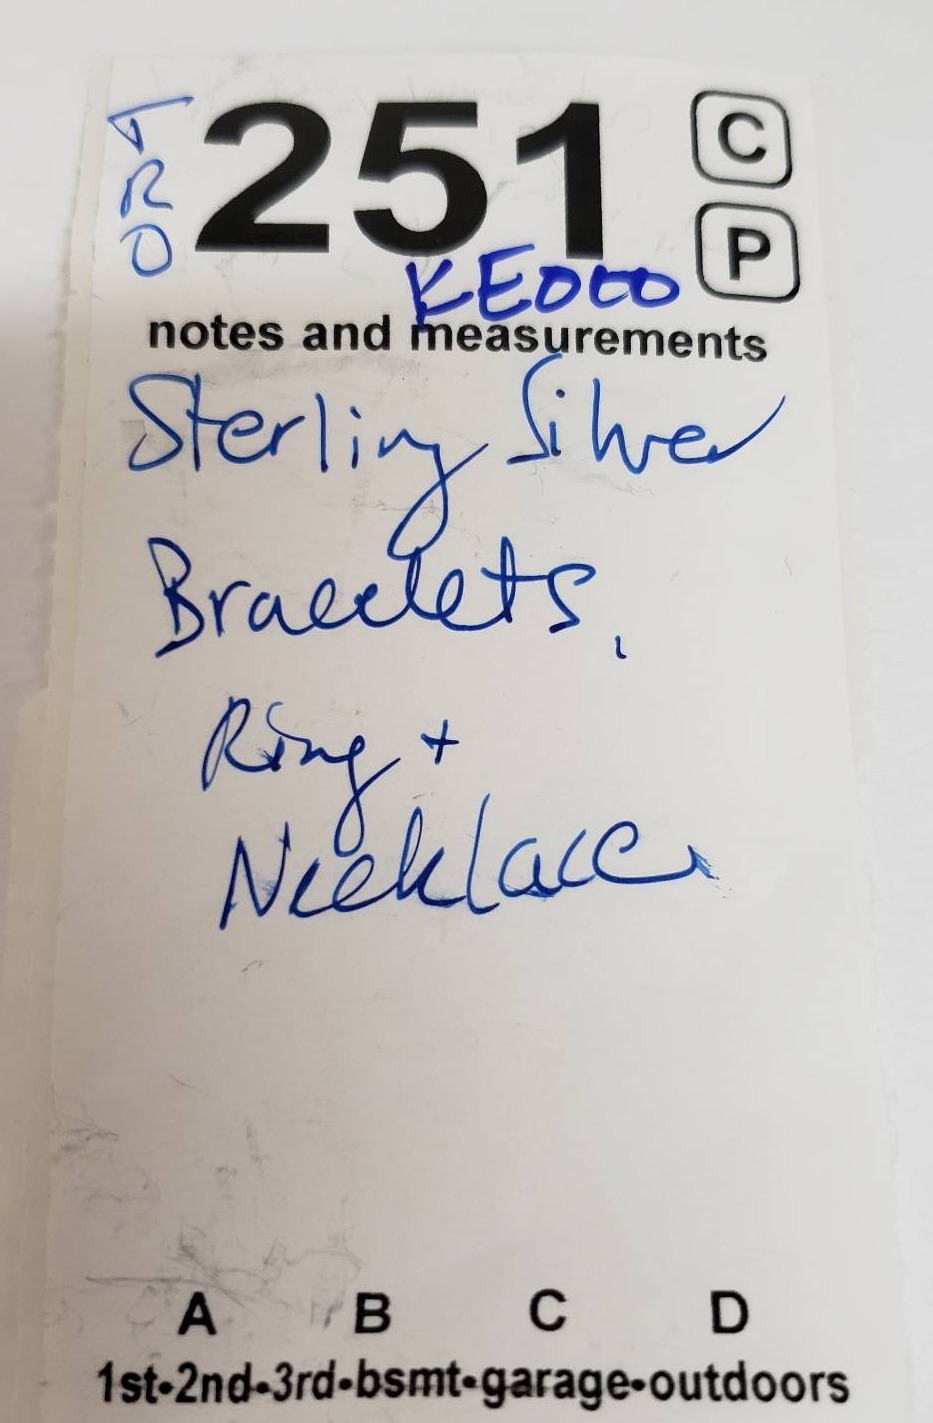 TRO
251
C
P
KE000
notes and measurements
Sterling Silver
Bracelets,
Ring +
Necklace
A B C D
1st•2nd•3rd•bsmt•garage•outdoors